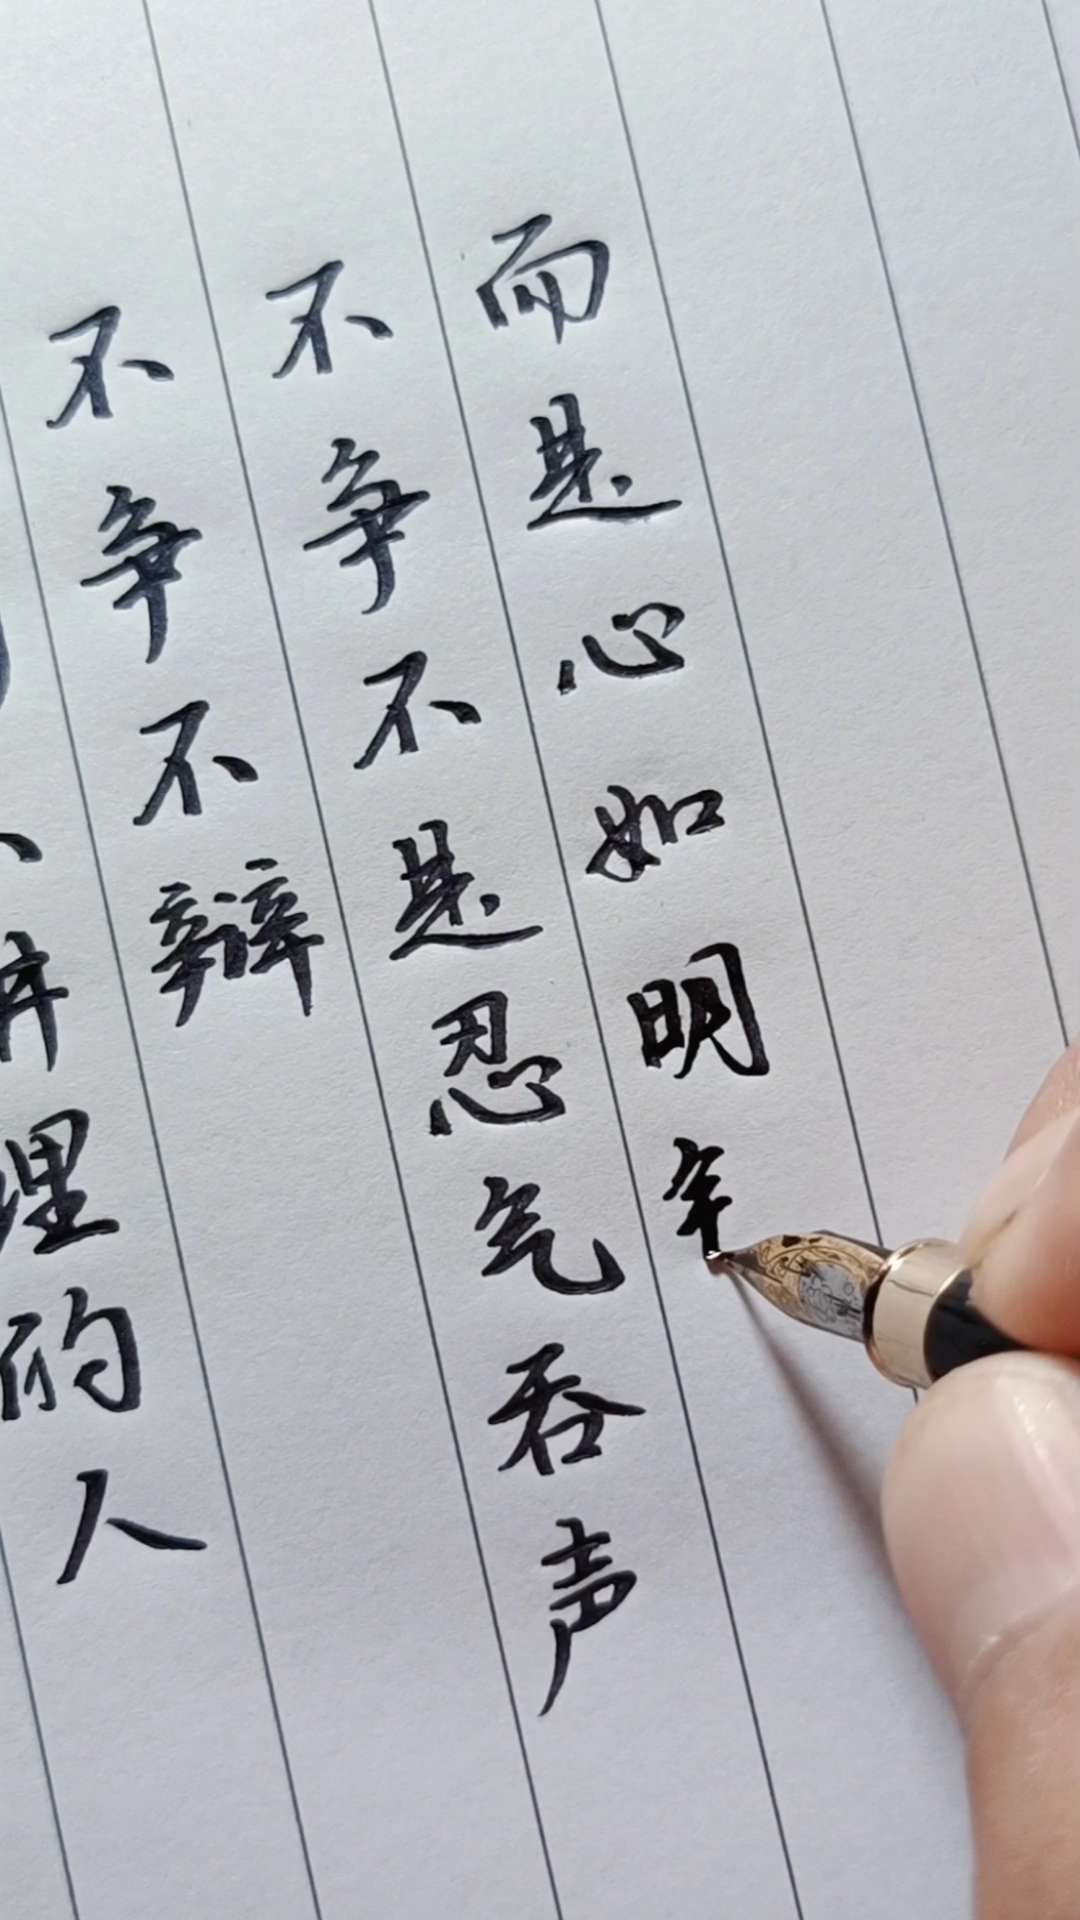 理的人
不争不辩
不争不是忍气吞声
而是心如明